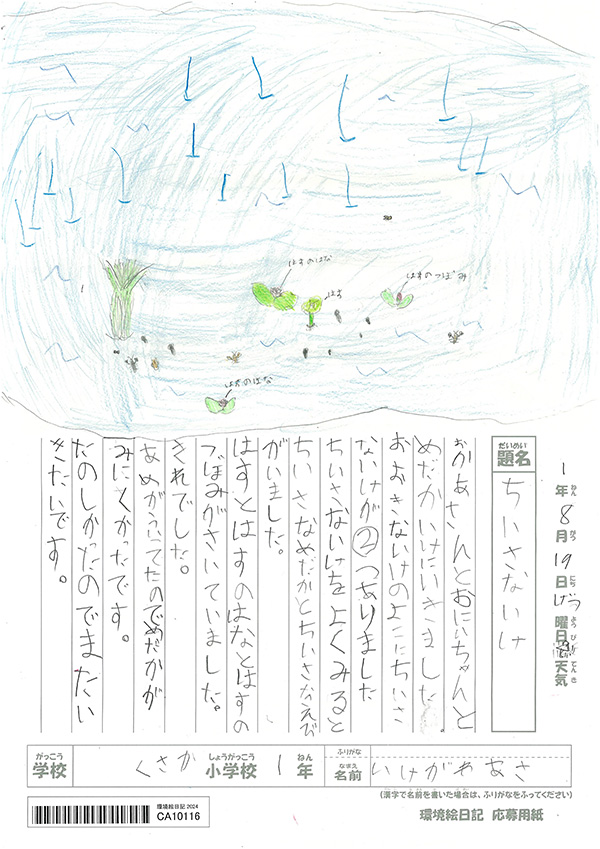 はすのはな
はす
はすのつぼみ
はすのはな
1年8月19日げつ曜日 天気
ねん がつ にち ようび てんき
だいめい
題名
ちいさないけ
おかあさんとおにいちゃんと
めだかいけにいきました。
おおきないけのよこにちいさ
ないけが2つありました
ちいさないけをよくみると
ちいさなめだかとちいさなえび
がいました。
はすとはすのはなとはすの
つぼみがさいていました。
きれでした。
あめがういてたのでめだかが
みにくかったです。
たのしかったのでまたい
きたいです。
がっこう
学校
くさか
しょうがっこう
小学校
1
ねん
年
ふりがな
なまえ
名前
いけがわあさ
(漢字で名前を書いた場合は、ふりがなをふってください)
環境絵日記 2024
CA10116
環境絵日記 応募用紙